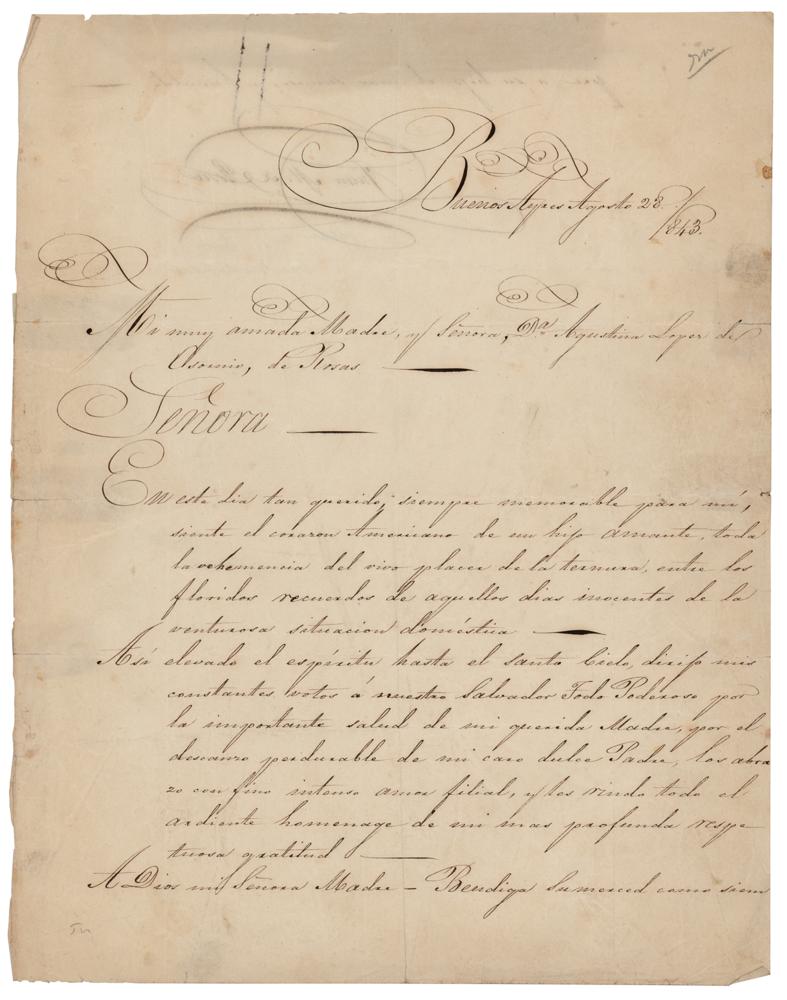 Buenos Ayres Agosto 28./
1843.
Mi muy amada Madre, y Señora, D.ª Agustina Lopez de
Osornio, de Rosas
Señora
En este dia tan querido, siempre memorable para mí,
siente el corazon Americano de un hijo amante, toda
la vehemencia del vivo placer de la ternura, entre los
floridos recuerdos de aquellos dias inocentes de la
venturosa situacion doméstica
Así elevado el espíritu hasta el santo Cielo, dirijo mis
constantes votos á nuestro Salvador Todo Poderoso por
la importante salud de mi querida Madre, por el
descanzo perdurable de mi caro dulce Padre, los abra
zo con fino intenso amor filial, y les rindo todo el
ardiente homenage de mi mas profunda respe
tuosa gratitud
A Dios mi Señora Madre – Bendiga Sumerced como siem